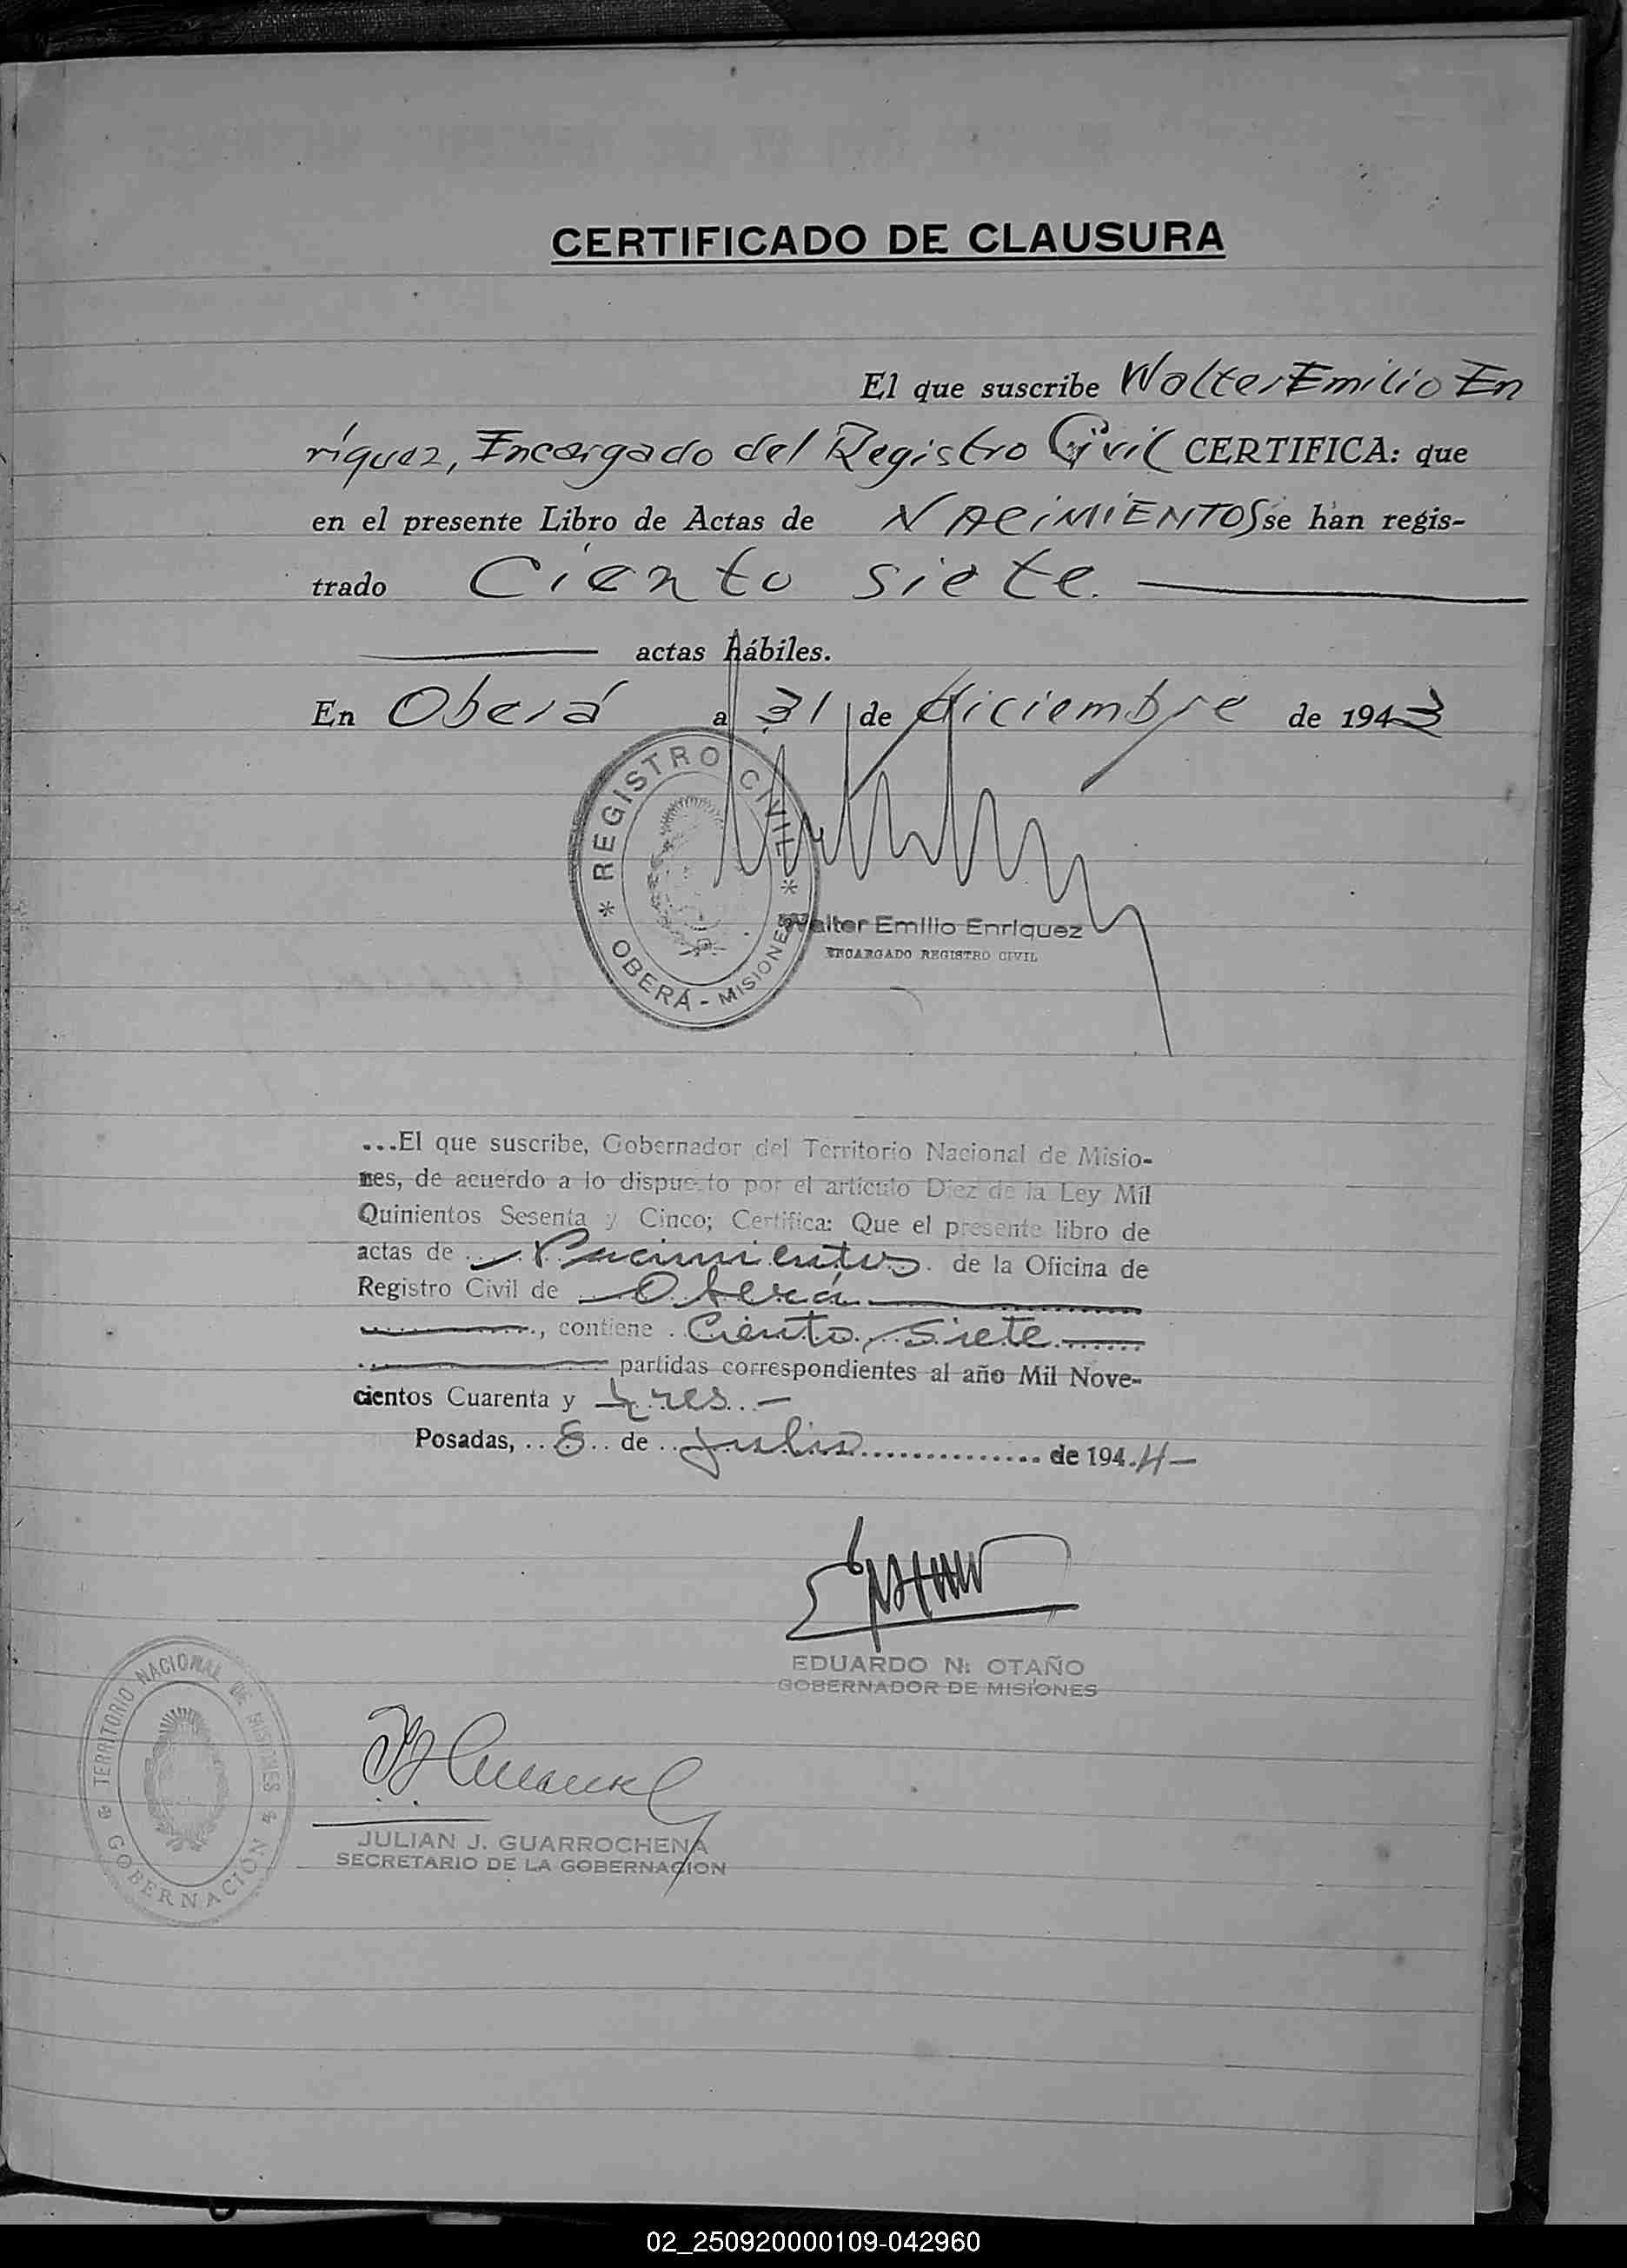 CERTIFICADO DE CLAUSURA
El que suscribe Walter Emilio En
ríquez, Encargado del Registro Civil CERTIFICA: que
en el presente Libro de Actas de NACIMIENTOS se han regis-
trado Ciento siete.
actas hábiles.
En Oberá a 31 de diciembre de 1943
REGISTRO CIVIL
OBERÁ - MISIONES
Walter Emilio Enriquez
ENCARGADO REGISTRO CIVIL
...El que suscribe, Gobernador del Territorio Nacional de Misio-
nes, de acuerdo a lo dispuesto por el artículo Diez de la Ley Mil
Quinientos Sesenta y Cinco; Certifica: Que el presente libro de
actas de Nacimientos de la Oficina de
Registro Civil de Oberá
, contiene Ciento Siete
partidas correspondientes al año Mil Nove-
cientos Cuarenta y tres.-
Posadas, 8 de julio de 1944-
EDUARDO N. OTAÑO
GOBERNADOR DE MISIONES
TERRITORIO NACIONAL DE MISIONES
GOBERNACIÓN
JULIAN J. GUARROCHENA
SECRETARIO DE LA GOBERNACION
02_250920000109-042960